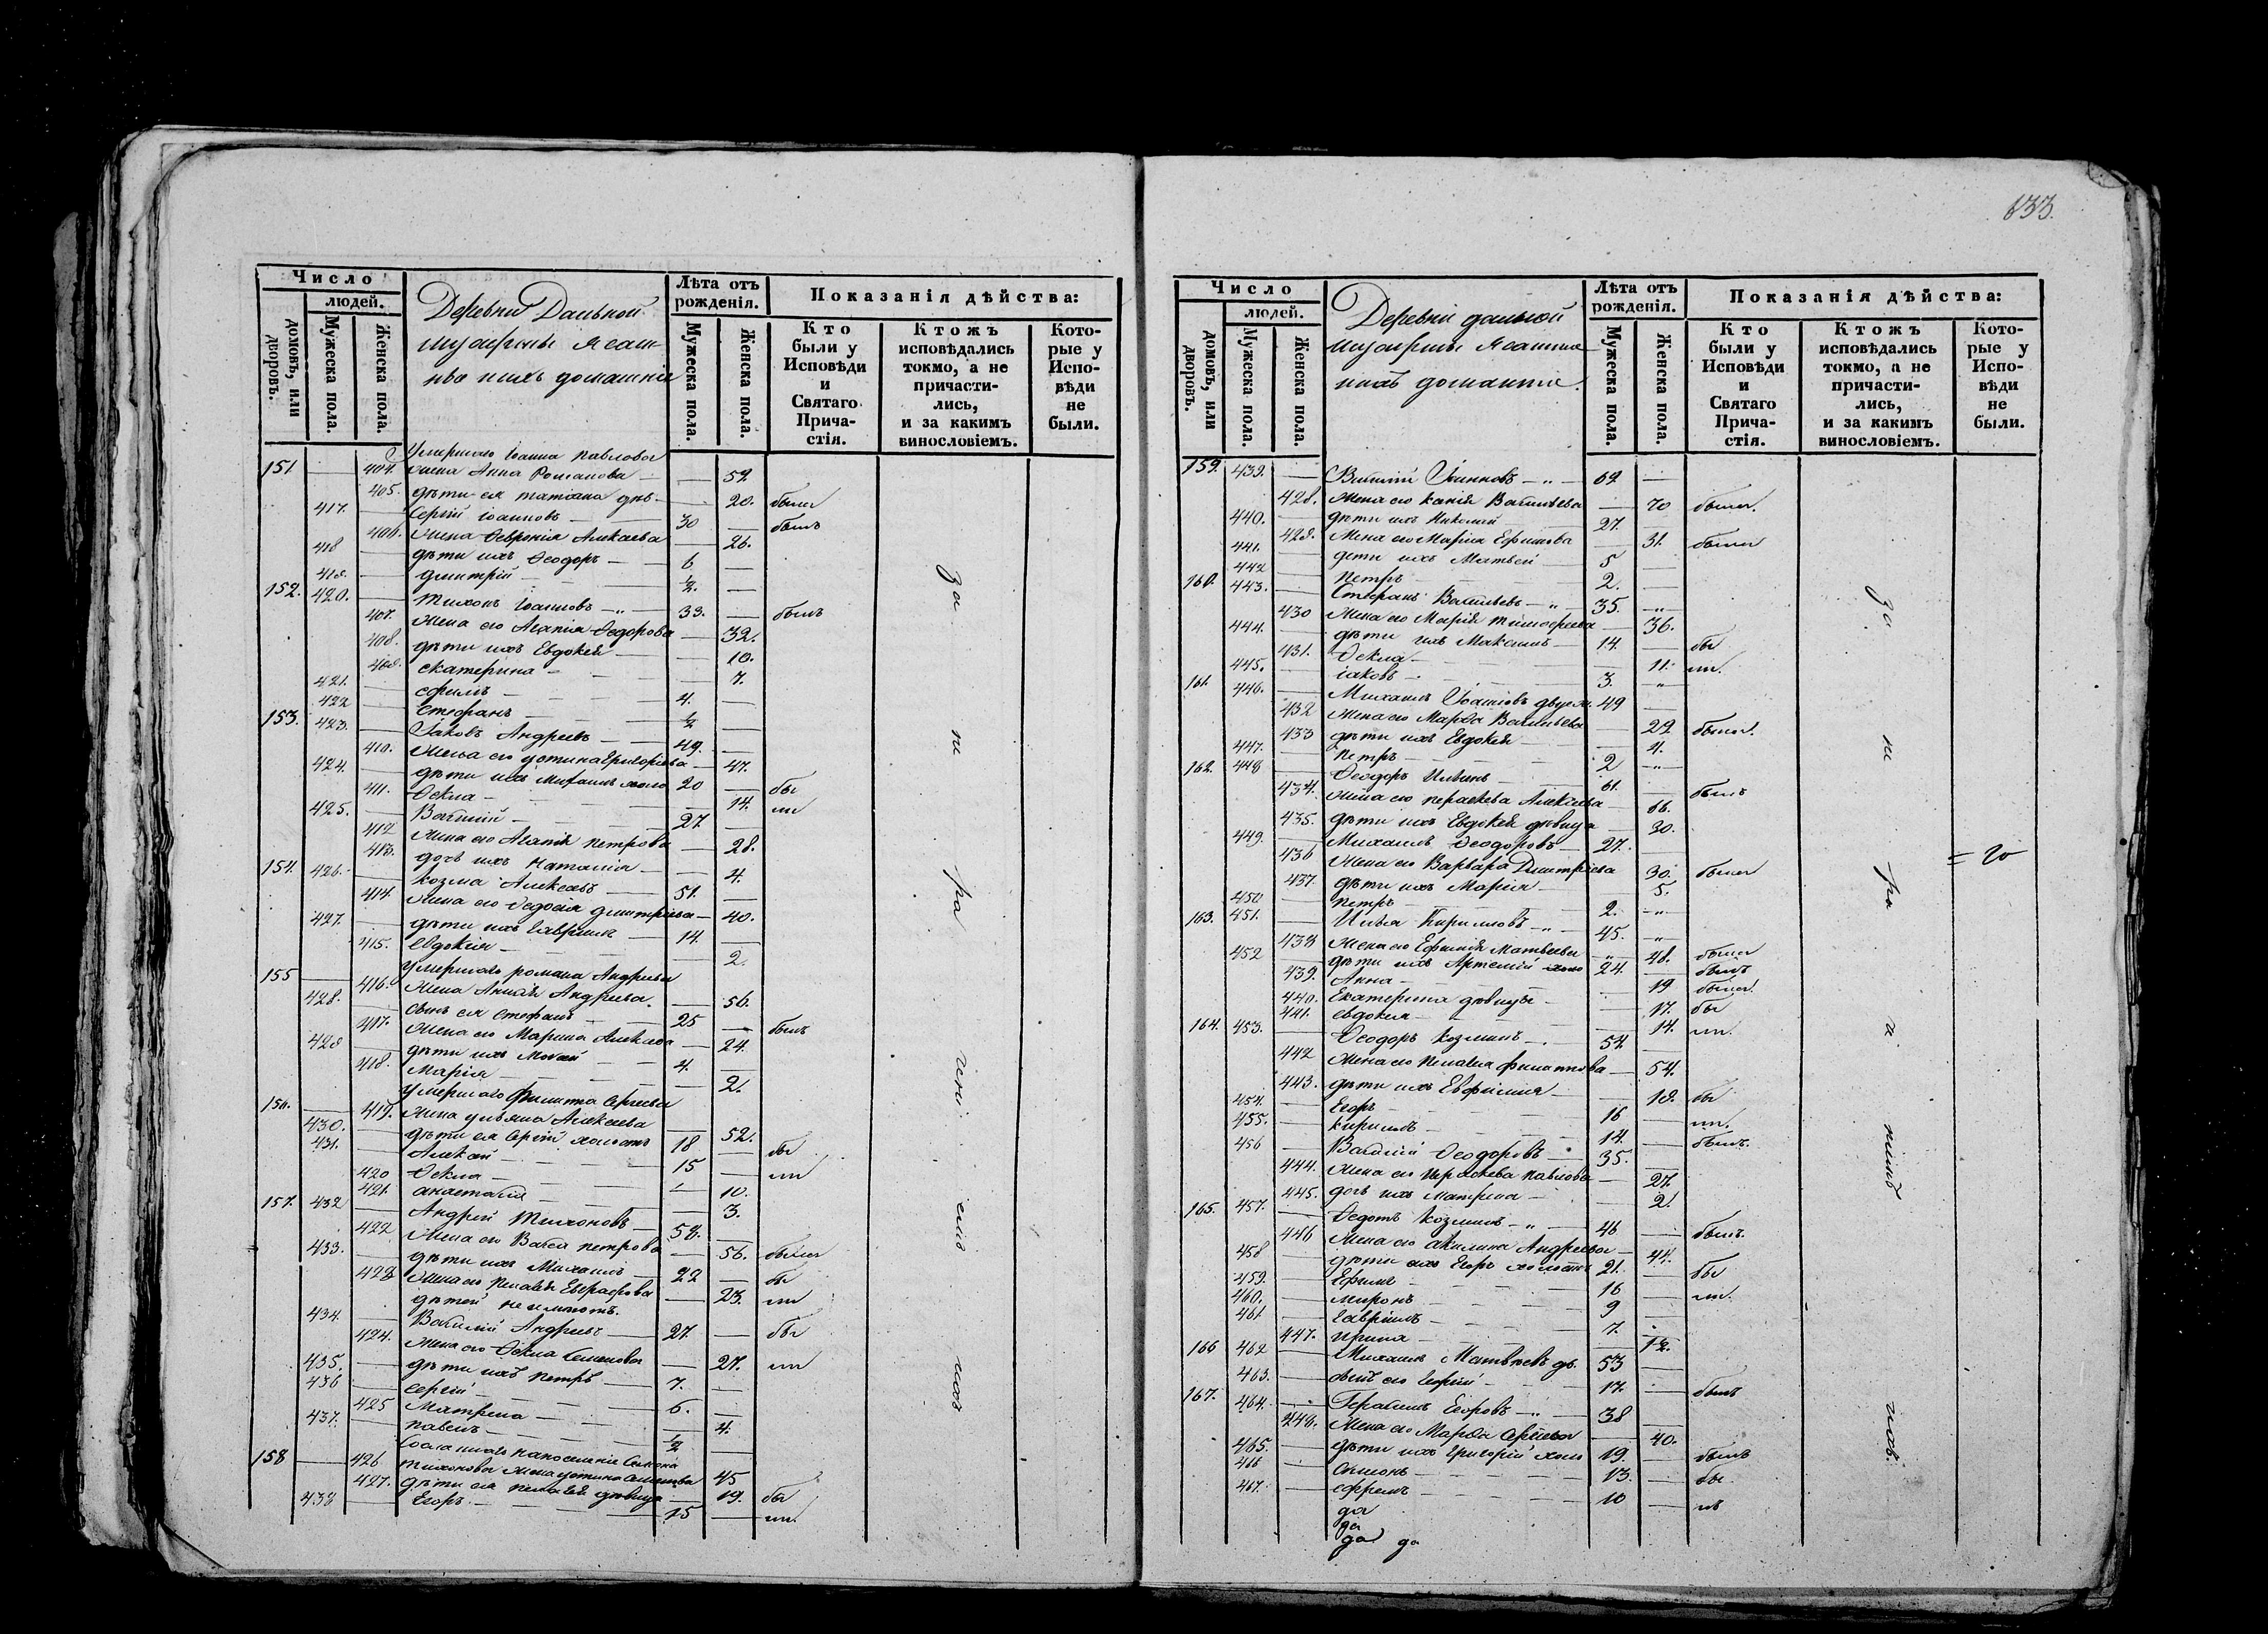 Число
людей.
домовъ, или дворовъ.
Мужеска пола.
Женска пола.
Деревни Дальной
шуструны ясаш
нѣо нихъ домашніе
Лѣта отъ рожденія.
Мужеска пола.
Женска пола.
Показанія дѣйства:
Кто были у Исповѣди и Святаго Прича-стія.
Ктожъ исповѣдались токмо, а не причасти-лись, и за какимъ винословіемъ.
Кото-рые у Испо-вѣди не были.
Умершаго Іоанна Павлова
151. 404. жена Анна Романова 52
405. дѣти ея Татіана дѣв 20. были
417. Сергій Іоанновъ 30 былъ
406. жена Февронія Алекѣева 26.
418 дѣти ихъ Ѳеодоръ 6
419. Дмитрій ½.
152. 420. Тихонъ Іоанновъ 33. былъ
407. жена его Агапія Ѳедорова 32.
408. дѣти ихъ Евдокія 10.
409. екатерина 7.
421. ефимъ 4.
422 Стефанъ ½
153. 423. Іаковъ Андреевъ 49.
410. жена его устина Григорьева 47.
424. дѣти ихъ Михаилъ холо 20 бы
411. Ѳекла 14. ли
425. Василій 27
412 жена его Агапія петрова 28.
413. дочь ихъ Наталія 4.
154. 426. козма Алексѣевъ 51.
414 жена его Ѳедосія дмитріева 40.
427. дѣти ихъ Гавріилъ 14.
415. евдокія 2.
155 Умершаго романа Андреева
416. жена Анисія Андреева. 56.
428. сынъ ея Стефанъ 25 былъ
417. жена его Марина Алексѣева 24.
429 дѣти ихъ Мокѣй 4.
418. Марія 2.
Умершаго Филипа Сергѣева
156. 419. жена ульяна Алексѣева 52.
430. дѣти ея Сергій холостъ 18 бы
431. Алексѣй 15 ли
420 Ѳекла 10.
421. анастасія 3.
157. 432 Андрей Тихоновъ 58.
422 жена его Васса петрова 56. были
433. дѣти ихъ Михаилъ 22 бы
423 жена его Пелагея Евграфова 23. ли
дѣтей не имѣютъ.
434. Василій Андреевъ 27. бы
424. жена его Ѳекла Семенова 27. ли
435. дѣти ихъ петръ 7.
436 Сергій 6.
425 Матрена 4.
437. павелъ ½
158 Сосланнаго на поселеніе Симона
426 тихонова жена устина Семенова 45
427. дѣти ея пелагея дѣвица 19. бы
438 Егоръ 15 ли.
За не ра чені емъ ихъ
133.
Число
людей.
домовъ, или дворовъ.
Мужеска пола.
Женска пола.
Деревни дальной
шуструны ясашн
нихъ домашніе.
Лѣта отъ рожденія.
Мужеска пола.
Женска пола.
Показанія дѣйства:
Кто были у Исповѣди и Святаго Прича-стія.
Ктожъ исповѣдались токмо, а не причасти-лись, и за какимъ винословіемъ.
Кото-рые у Испо-вѣди не были.
159. 439. Василій Іоанновъ 69
428. жена его Васильева 70 были.
440. дѣти ихъ Николай 27.
429. жена его Марія Ефимова 31. были
441. дѣти ихъ Матвей 5
442 петръ 2.
160. 443. Стефанъ Васильевъ 35.
430 жена его Марія тимофеева 36.
444. дѣти ихъ Максимъ 14. бы
431. Ѳекла 11. ли.
445. іаковъ 3.
161. 446. Михаилъ Іоанновъ 49
432 жена его Марѳа Васильева 29 были.
433 дѣти ихъ Евдокія 4.
447. петръ 2
162. 448 Ѳеодоръ Ильинъ 61. былъ
434. жена его параскева Алексѣева 66.
435. дѣти ихъ Евдокія дѣвица 30.
449. Михаилъ Ѳеодоровъ 27.
436 жена его Варвара Дмитріева 30. были
437. дѣти ихъ Марія 5.
450 петръ 2.
163. 451. Илья Кириловъ 45.
438 жена его Ефимія Матвеева 48. были
452 дѣти ихъ Артемій холо 24. былъ
439. Анна 19 были.
440. Екатерина дѣвицы 17. бы
441. евдокія 14. ли.
164. 453. Ѳеодоръ козминъ 54
442 жена его Пелагея филатова 54.
443. дѣти ихъ Евфимія 19. бы
454. Егоръ 16 ли.
455. кирилъ 14. былъ.
456 Василій Ѳеодоровъ 35.
444. жена его параскева павлова 27.
445. дочь ихъ матрена 2.
165. 457. Ѳедотъ козминъ 46 былъ.
446 жена его акилина Андреева 44.
458 дѣти ихъ Егоръ холостъ 21. бы
459. Ефимъ 16 ли.
460. миронъ 9
461 гавріилъ 7.
447. ирина 12.
166 462 Михаилъ Матвеевъ 53
463. сынъ его Георгій 17. былъ
167. 464. Герасимъ Егоровъ 38
448. жена его Марѳа Сергѣева 40.
465. дѣти ихъ григорій холо 19. былъ
466 Симонъ 13. бы
467. ефремъ 10 лъ
да
да
да да
За не ра чені емъ ихъ.
= 20